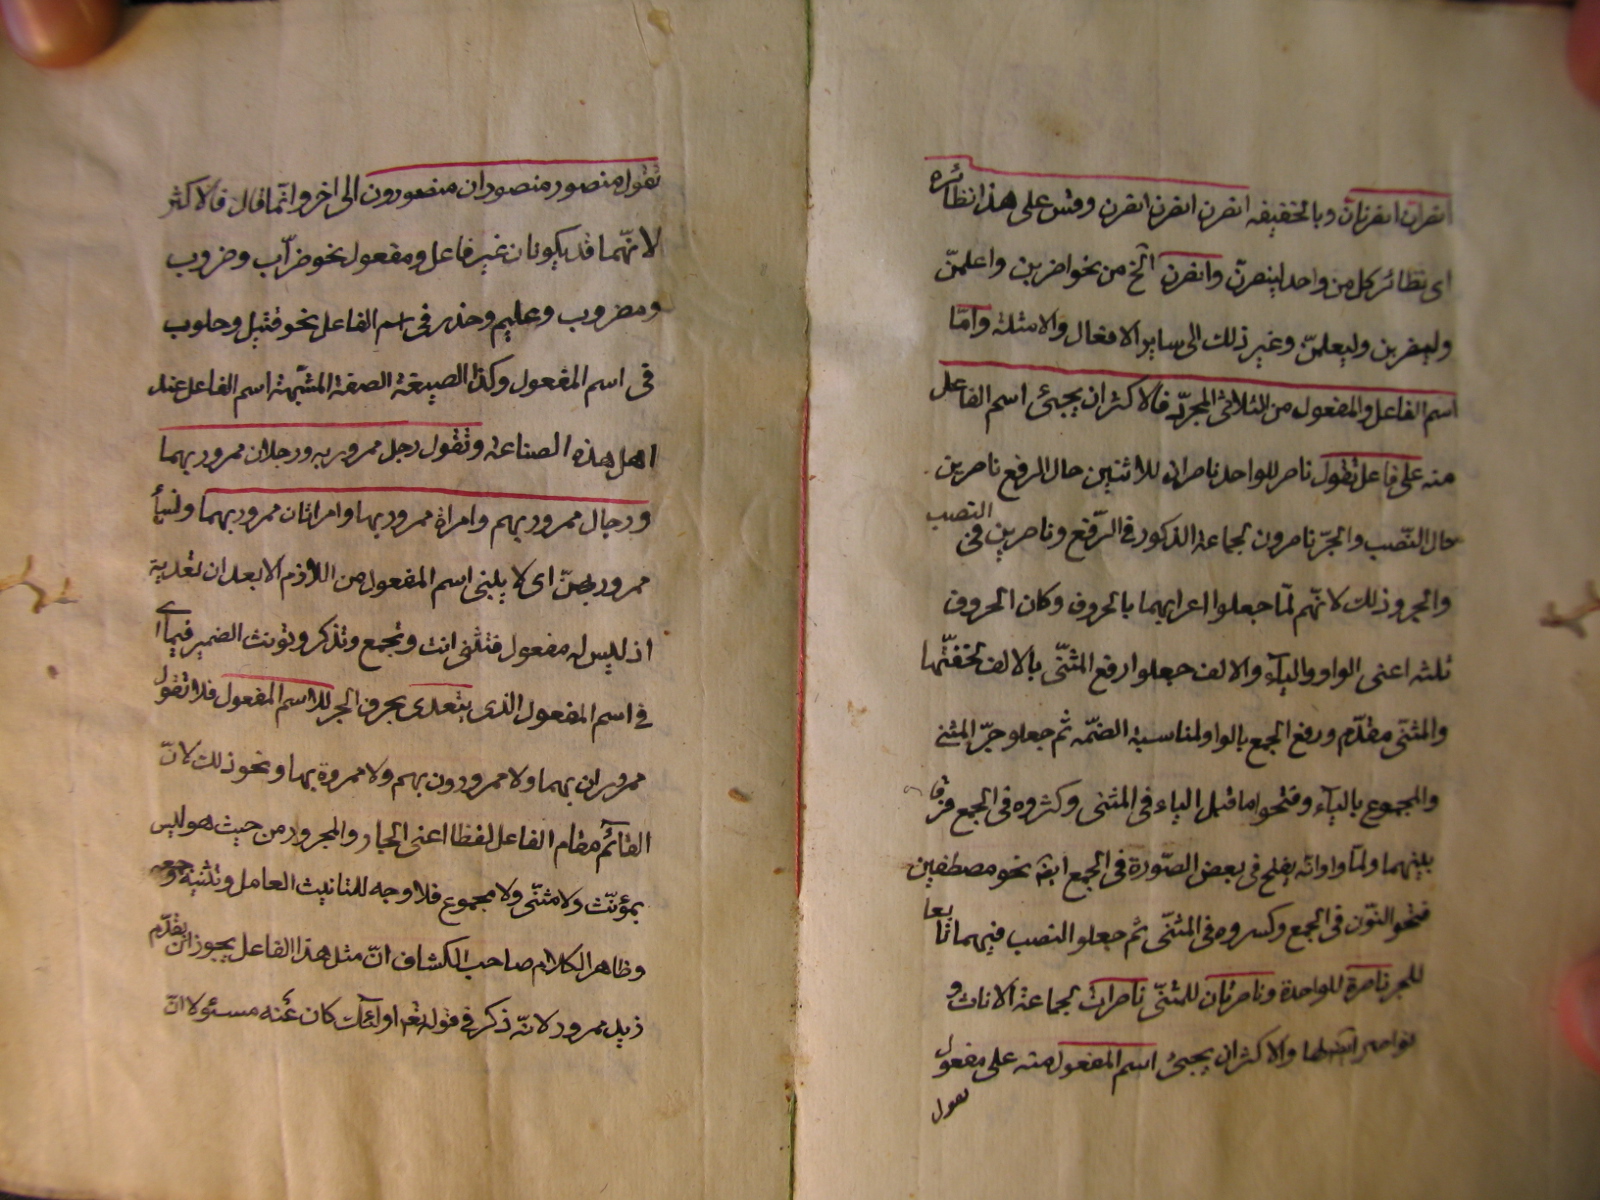 انصران انصرنان وبالخفيفه انصرن انصرن انصرن وقس على هذا نظائره
اى نظائر كل من واحد لينصرنّ وانصرن الخ من نحو اضربن واعلمنّ
وليضربن وليعلمنّ وغير ذلك الى ساير الافعال والامثلة وامّا
اسم الفاعل والمفعول من الثلاثى المجرّد فالاكثر ان يجيئ اسم الفاعل
منه على فاعل تقول ناصر للواحد ناصران للاثنين حال الرفع ناصرين
حال النّصب والجرّ ناصرون لجماعة الذكور فى الرّفع وناصرين فى النصب
والجر وذلك لانّهم لمّا جعلوا اعرابهما بالحروف وكان الحروف
ثلثه اعنى الواو والياء والالف جعلوا رفع المثنّى بالالف لخفتّها
والمثنّى مقدّم ورفع الجمع بالواو لمناسبة الضمّه ثم جعلو جرّ المثنى
والمجموع بالياء وفتحوا ما قبل الياء فى المثنى وكثروه فى الجمع فرقا
بينهما ولمّا راوا انّه يفتح فى بعض الصّورة فى الجمع ايضا نحو مصطفين
فتحو النّون فى الجمع وكسروه فى المثنّى ثم جعلو النصب فيهما تابعا
للجر ناصرة للواحدة وناصرتان للمثنّى ناصرات لجماعة الاناث و
نواصر ايضا لها والاكثر ان يجيئ اسم المفعول منه على مفعول
تقول
تقول منصور منصوران منصورون الى اخر وانّما قال فالاكثر
لانّهما قد يكونان غير فاعل ومفعول نحو ضرّاب وضروب
ومضروب وعليم وحذر فى اسم الفاعل نحو قتيل وحلوب
فى اسم المفعول وكذا الصيغة الصفة المشبّهة اسم الفاعل عند
اهل هذه الصناعة وتقول رجل ممرور به ورجلان ممرور بهما
ورجال ممرور بهم وامراة ممرور بها وامراتان ممرور بهما ونساٴ
ممرور بهنّ اى لا يبنى اسم المفعول من اللاوزم الا بعد ان تعديه
اذ ليس له مفعول فتثنى انت وتجمع وتذكر وتونث الضمير فيما اى
فى اسم المفعول الذى يتعدى بحرف الجر للاسم المفعول فلا تقول
ممروران بهما ولا ممرورون بهم ولا ممرورة بها ونحو ذلك لانّ
القائم مقام الفاعل لفظا اعنى الجار والمجرور من حيث هو ليس
بمؤنّث ولا مثنّى ولا مجموع فلا وجه للتانيث العامل وتثنيه وجمعه
وظاهر الكلام صاحب الكشاف انّ مثل هذا الفاعل يجوز ان يقدّم
زيد ممرور لانّه ذكر فى قوله تع اولئك كان عنه مسئولا انّ